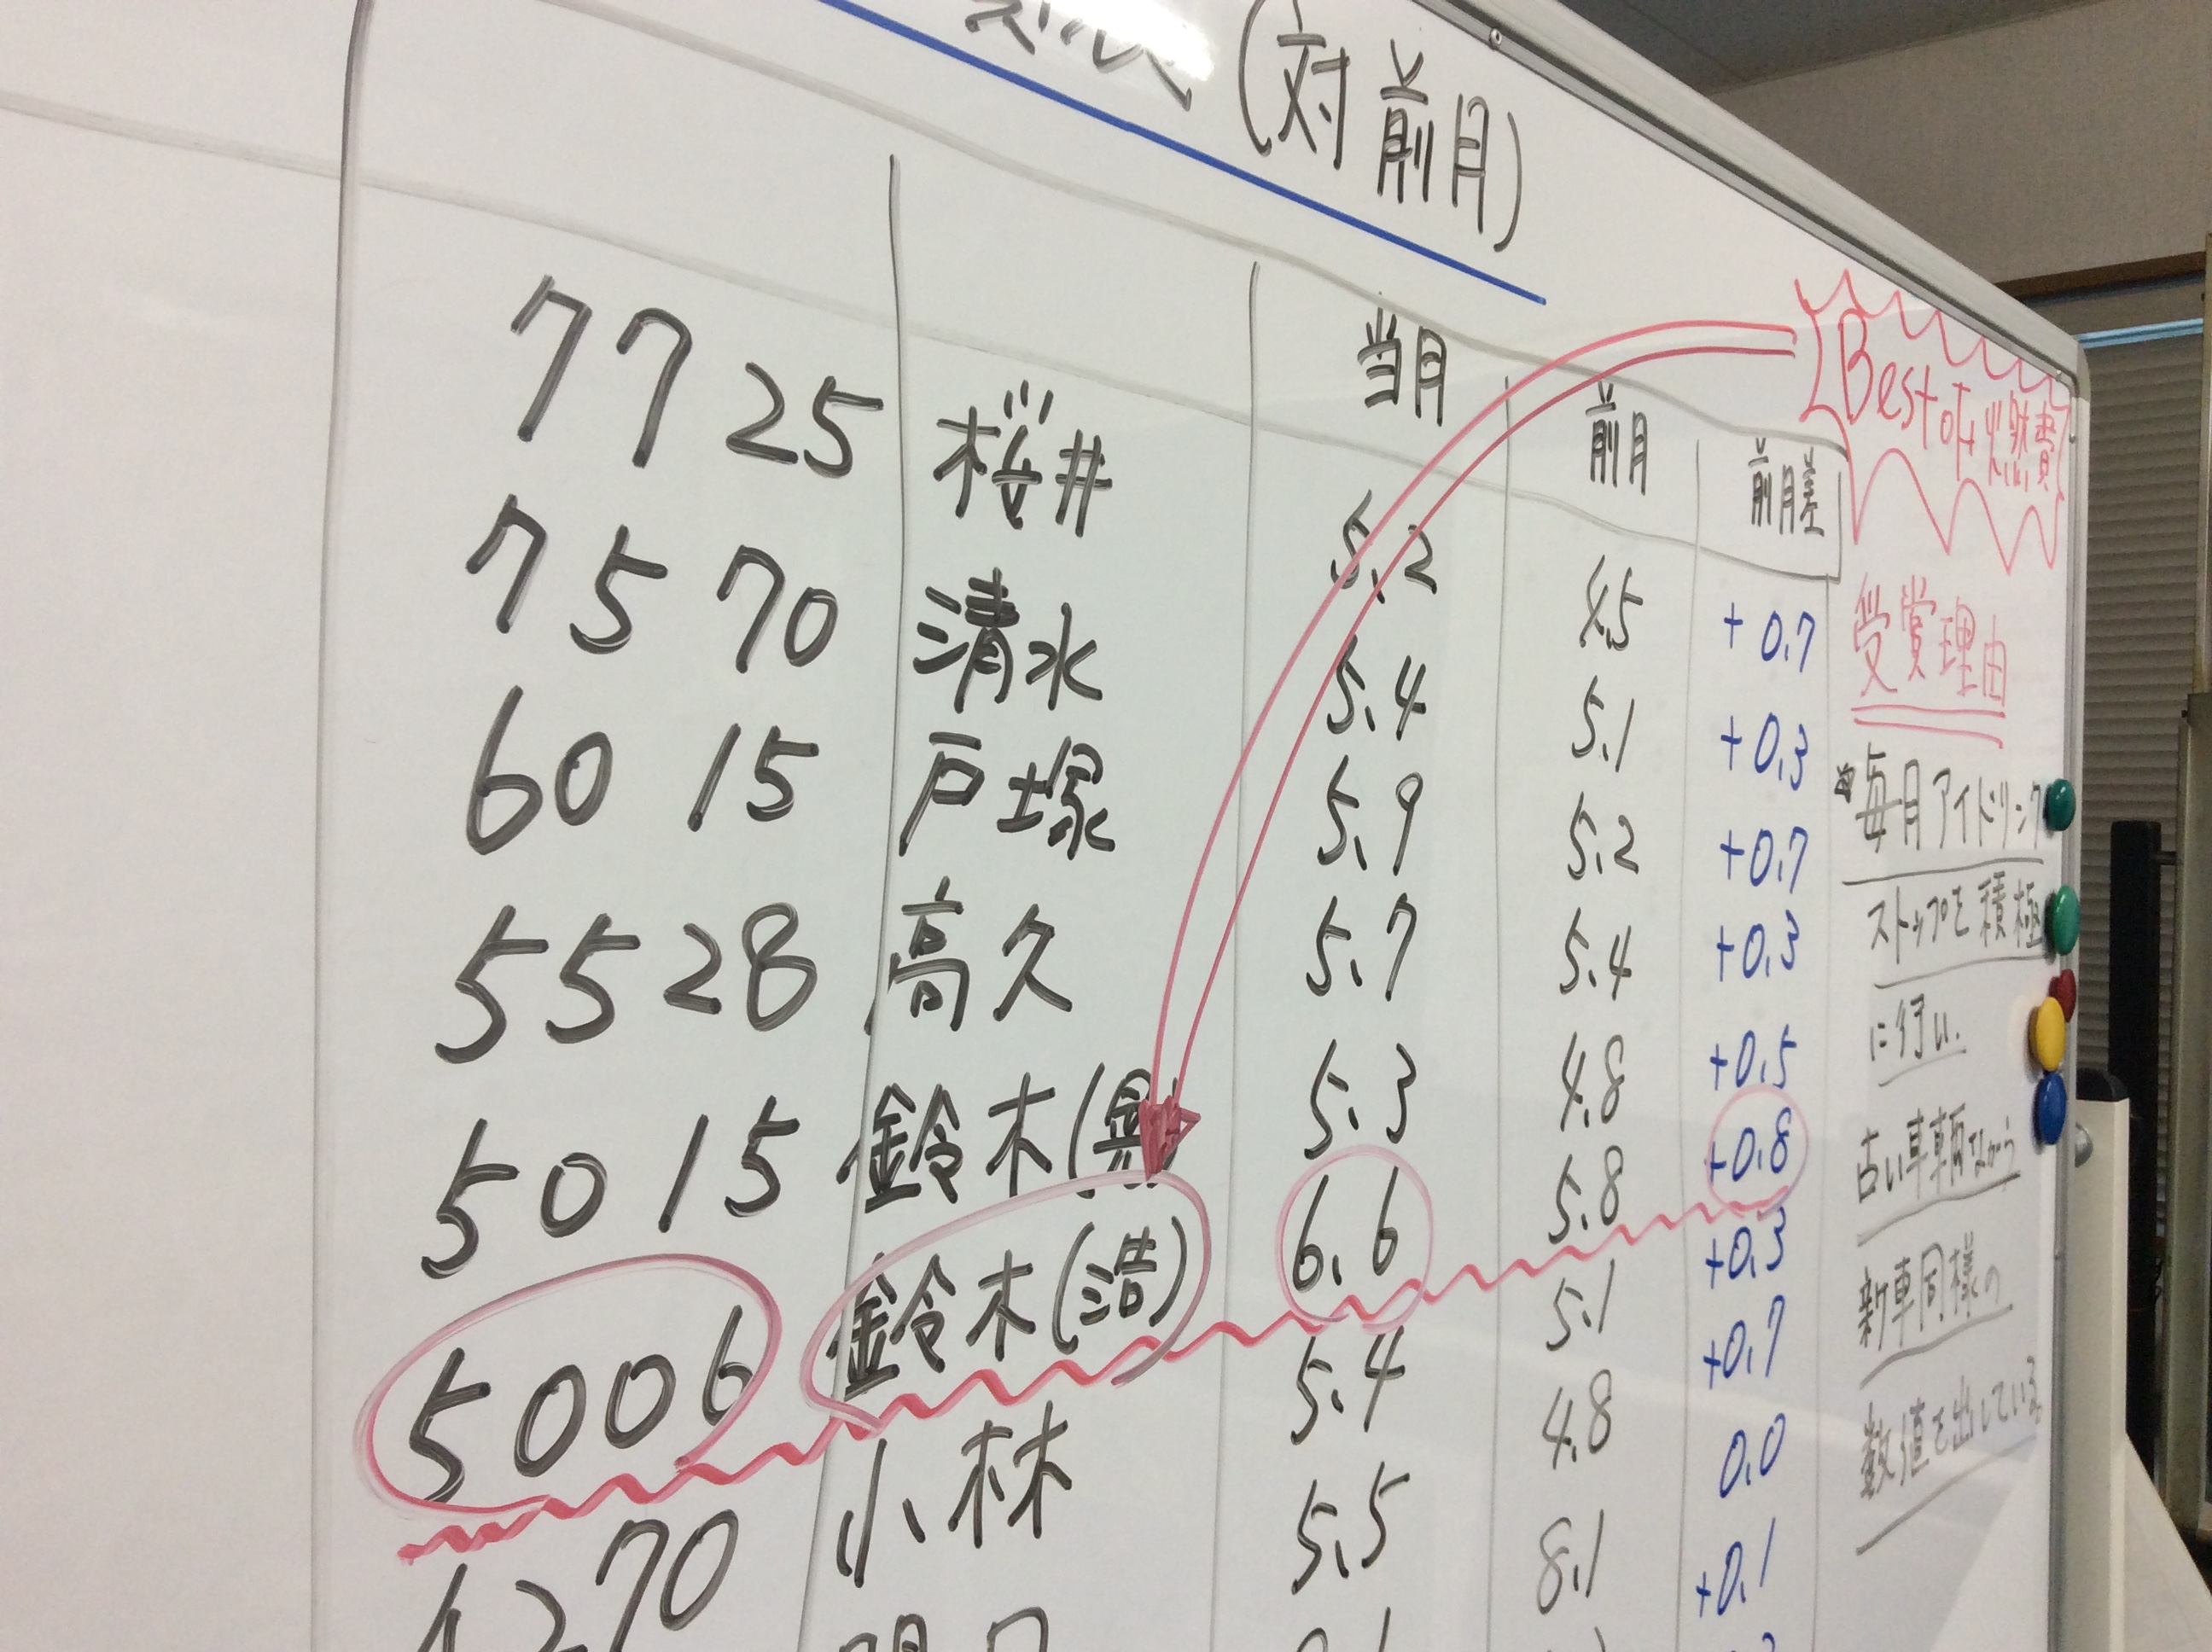 (対前月)
当月 前月 前月差
7725 桜井 5.2 4.5 +0.7
7570 清水 5.4 5.1 +0.3
6015 戸塚 5.9 5.2 +0.7
5528 高久 5.7 5.4 +0.3
5015 鈴木( 5.3 4.8 +0.5
5006 鈴木(浩) 6.6 5.8 +0.8
小林 5.4 5.1 +0.3
5.5 4.8 +0.7
8.1 0.0
+0.1
Best of 燃費
受賞理由
毎月アイドリング
ストップを積極
に行い、
古い車輌ながら
新車同様の
数値を出している。